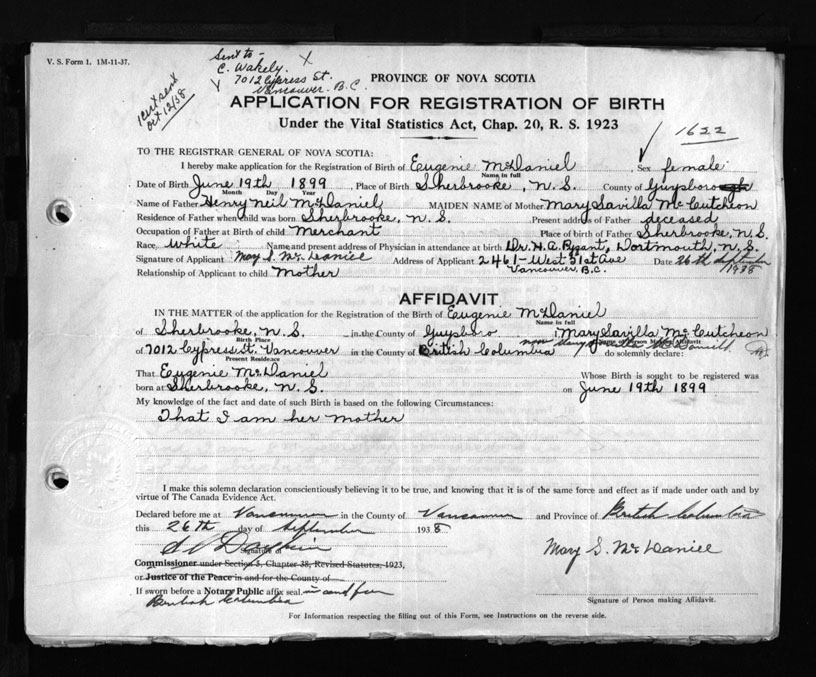 V. S. Form 1. 1M-11-37.
Sent to -
C. Wakely. X
7012 Cypress St.
Vancouver. B.C.
1 cert sent
Oct 12/38
PROVINCE OF NOVA SCOTIA
APPLICATION FOR REGISTRATION OF BIRTH
Under the Vital Statistics Act, Chap. 20, R. S. 1923
1622
TO THE REGISTRAR GENERAL OF NOVA SCOTIA:
I hereby make application for the Registration of Birth of Eugenie McDaniel, Sex female
Name in full
Date of Birth June 19th 1899, Place of Birth Sherbrooke, N.S. County of Guysboro
Month Day Year
Name of Father Henry Neil McDaniel MAIDEN NAME of Mother Mary Savilla McCutcheon
Residence of Father when child was born Sherbrooke, N.S. Present address of Father deceased
Occupation of Father at Birth of child Merchant Place of birth of Father Sherbrooke, N.S.
Race white Name and present address of Physician in attendance at birth Dr. H.A. Dortmouth, N.S.
Signature of Applicant Mary S. McDaniel Address of Applicant 2461-West 31st Ave Date 26th September
Vancouver. B.C. 1938
Relationship of Applicant to child Mother
AFFIDAVIT
IN THE MATTER of the application for the Registration of the Birth of Eugenie McDaniel
Name in full
of Sherbrooke, N.S. in the County of Guysboro. I, Mary Savilla McCutcheon
Birth Place
of 7012 Cypress St. Vancouver in the County of British Columbia now Mary McDaniel do solemnly declare:
Present Residence
That Eugenie McDaniel Whose Birth is sought to be registered was
born at Sherbrooke, N.S. on June 19th 1899
My knowledge of the fact and date of such Birth is based on the following Circumstances:
That I am her mother
I make this solemn declaration conscientiously believing it to be true, and knowing that it is of the same force and effect as if made under oath and by
virtue of The Canada Evidence Act.
Declared before me at Vancouver in the County of Vancouver and Province of British Columbia
this 26th day of September 1938
Signature of
Mary S. McDaniel
Commissioner under Section 5, Chapter 38, Revised Statutes, 1923,
or Justice of the Peace in and for the County of
If sworn before a Notary Public affix seal. in and for
British Columbia
Signature of Person making Affidavit.
For Information respecting the filling out of this Form, see Instructions on the reverse side.